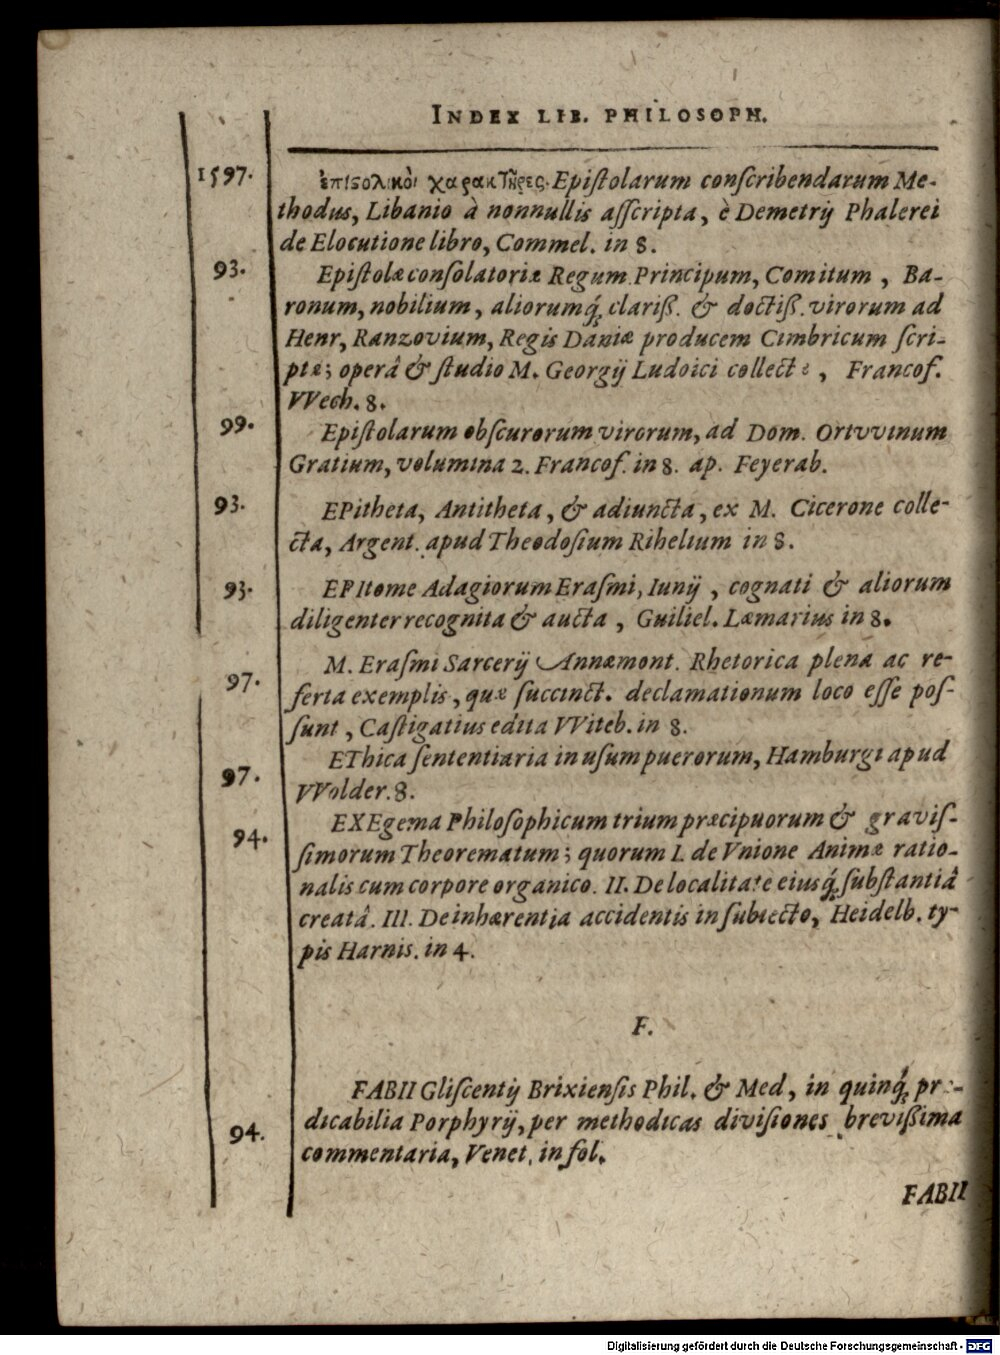 INDEX LIB. PHILOSOPH.
1597. ἐπιϛολικοὶ χαρακτῆρες. Epiſtolarum conſcribendarum Me-
thodus, Libanio à nonnullis aſſcripta, è Demetrij Phalerei
de Elocutione libro, Commel. in 8.
93. Epiſtolæ conſolatoriæ Regum Principum, Comitum, Ba-
ronum, nobilium, aliorumq́; clariß. & doctiß. virorum ad
Henr, Ranzovium, Regis Daniæ producem Cimbricum ſcri-
ptæ; operâ & ſtudio M. Georgij Ludoici collectæ, Francof.
VVech. 8.
99. Epiſtolarum obſcurorum virorum, ad Dom. Ortvvinum
Gratium, volumina 2. Francof. in 8. ap. Feyerab.
93. EPitheta, Antitheta, & adiuncta, ex M. Cicerone colle-
cta, Argent. apud Theodoſium Rihelium in 8.
93. EPItome Adagiorum Eraſmi, Iunij, cognati & aliorum
diligenter recognita & aucta, Guiliel. Læmarius in 8.
97. M. Eraſmi Sarcerij Annæmont. Rhetorica plena ac re-
ferta exemplis, quæ ſuccinct. declamationum loco eſſe poſ-
ſunt, Caſtigatius edita VViteb. in 8.
97. EThica ſententiaria in uſum puerorum, Hamburgi apud
VVolder. 8.
94. EXEgema Philoſophicum trium præcipuorum & graviſ-
ſimorum Theorematum; quorum I. de Vnione Animæ ratio-
nalis cum corpore organico. II. De localitate eiusq́; ſubſtantiâ
creatâ. III. De inhærentia accidentis in ſubiecto, Heidelb. ty-
pis Harnis. in 4.
F.
94. FABII Gliſcentij Brixienſis Phil. & Med, in quinq́; præ-
dicabilia Porphyrij, per methodicas diviſiones breviſſima
commentaria, Venet. in fol.
FABII
Digitalisierung gefördert durch die Deutsche Forschungsgemeinschaft - DFG